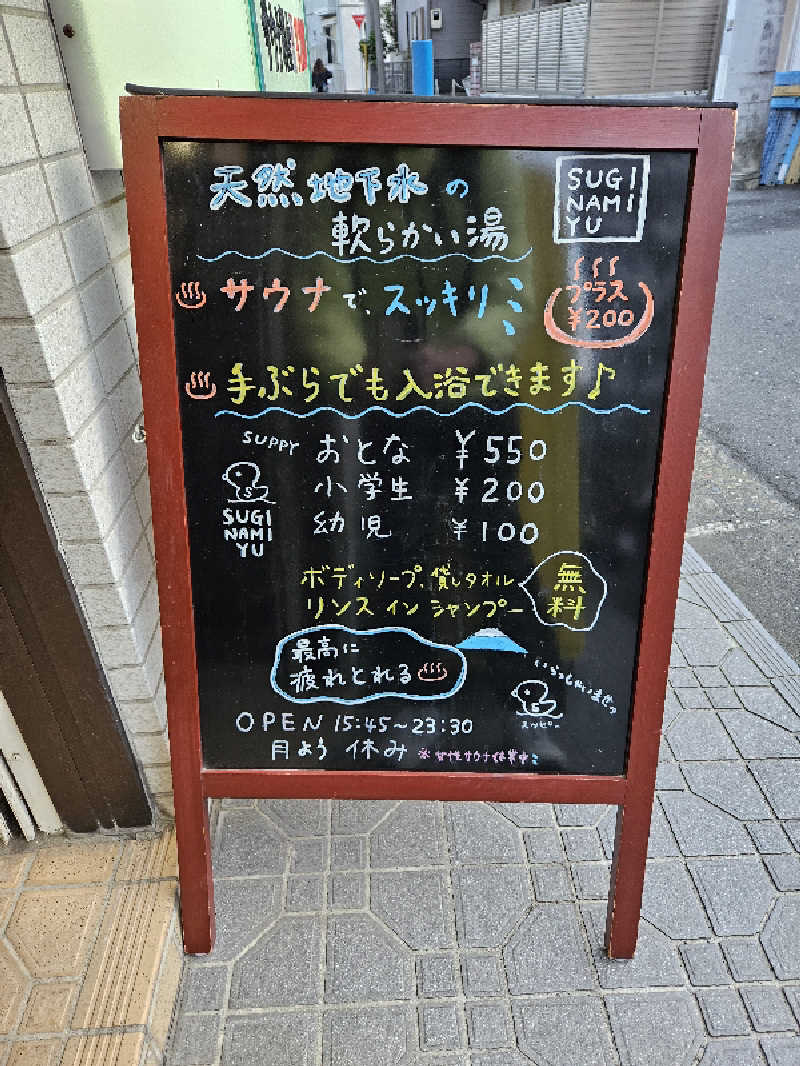 天然地下水の
軟らかい湯
SUGI
NAMI
YU
サウナで、スッキリ
プラス
¥200
手ぶらでも入浴できます♪
SUPPY
おとな ¥550
小学生 ¥200
幼児 ¥100
SUGI
NAMI
YU
ボディソープ、貸しタオル
リンスインシャンプー
無料
最高に
疲れとれる
いらっしゃいませっ
スッピー
OPEN 15:45~23:30
月よう休み
※女性サウナ休業中